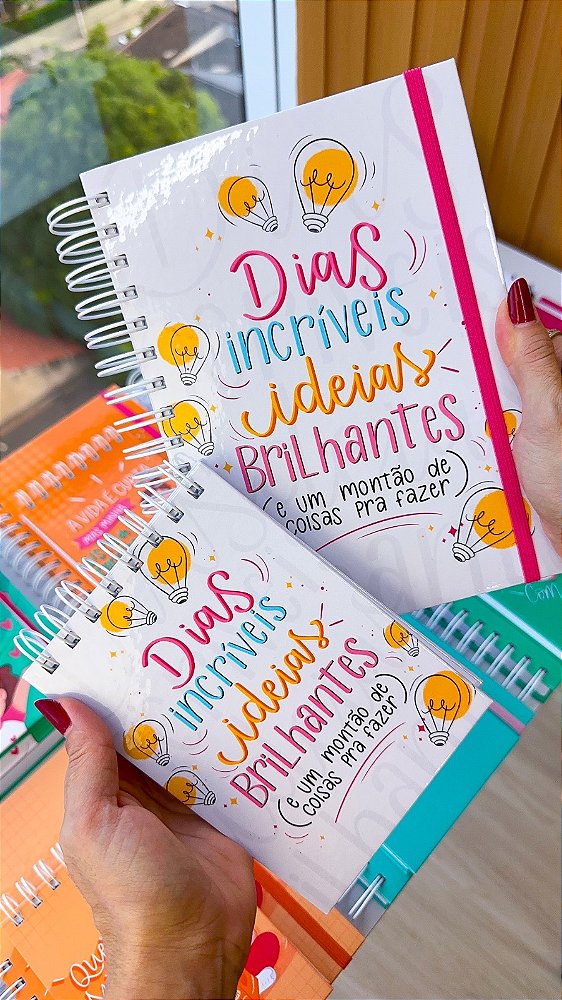 Dias
incríveis
ideias
Brilhantes
(e um montão de
coisas pra fazer)
Dias
incríveis
ideias
Brilhantes
(e um montão de
coisas pra fazer)
A VIDA É
Com
Que